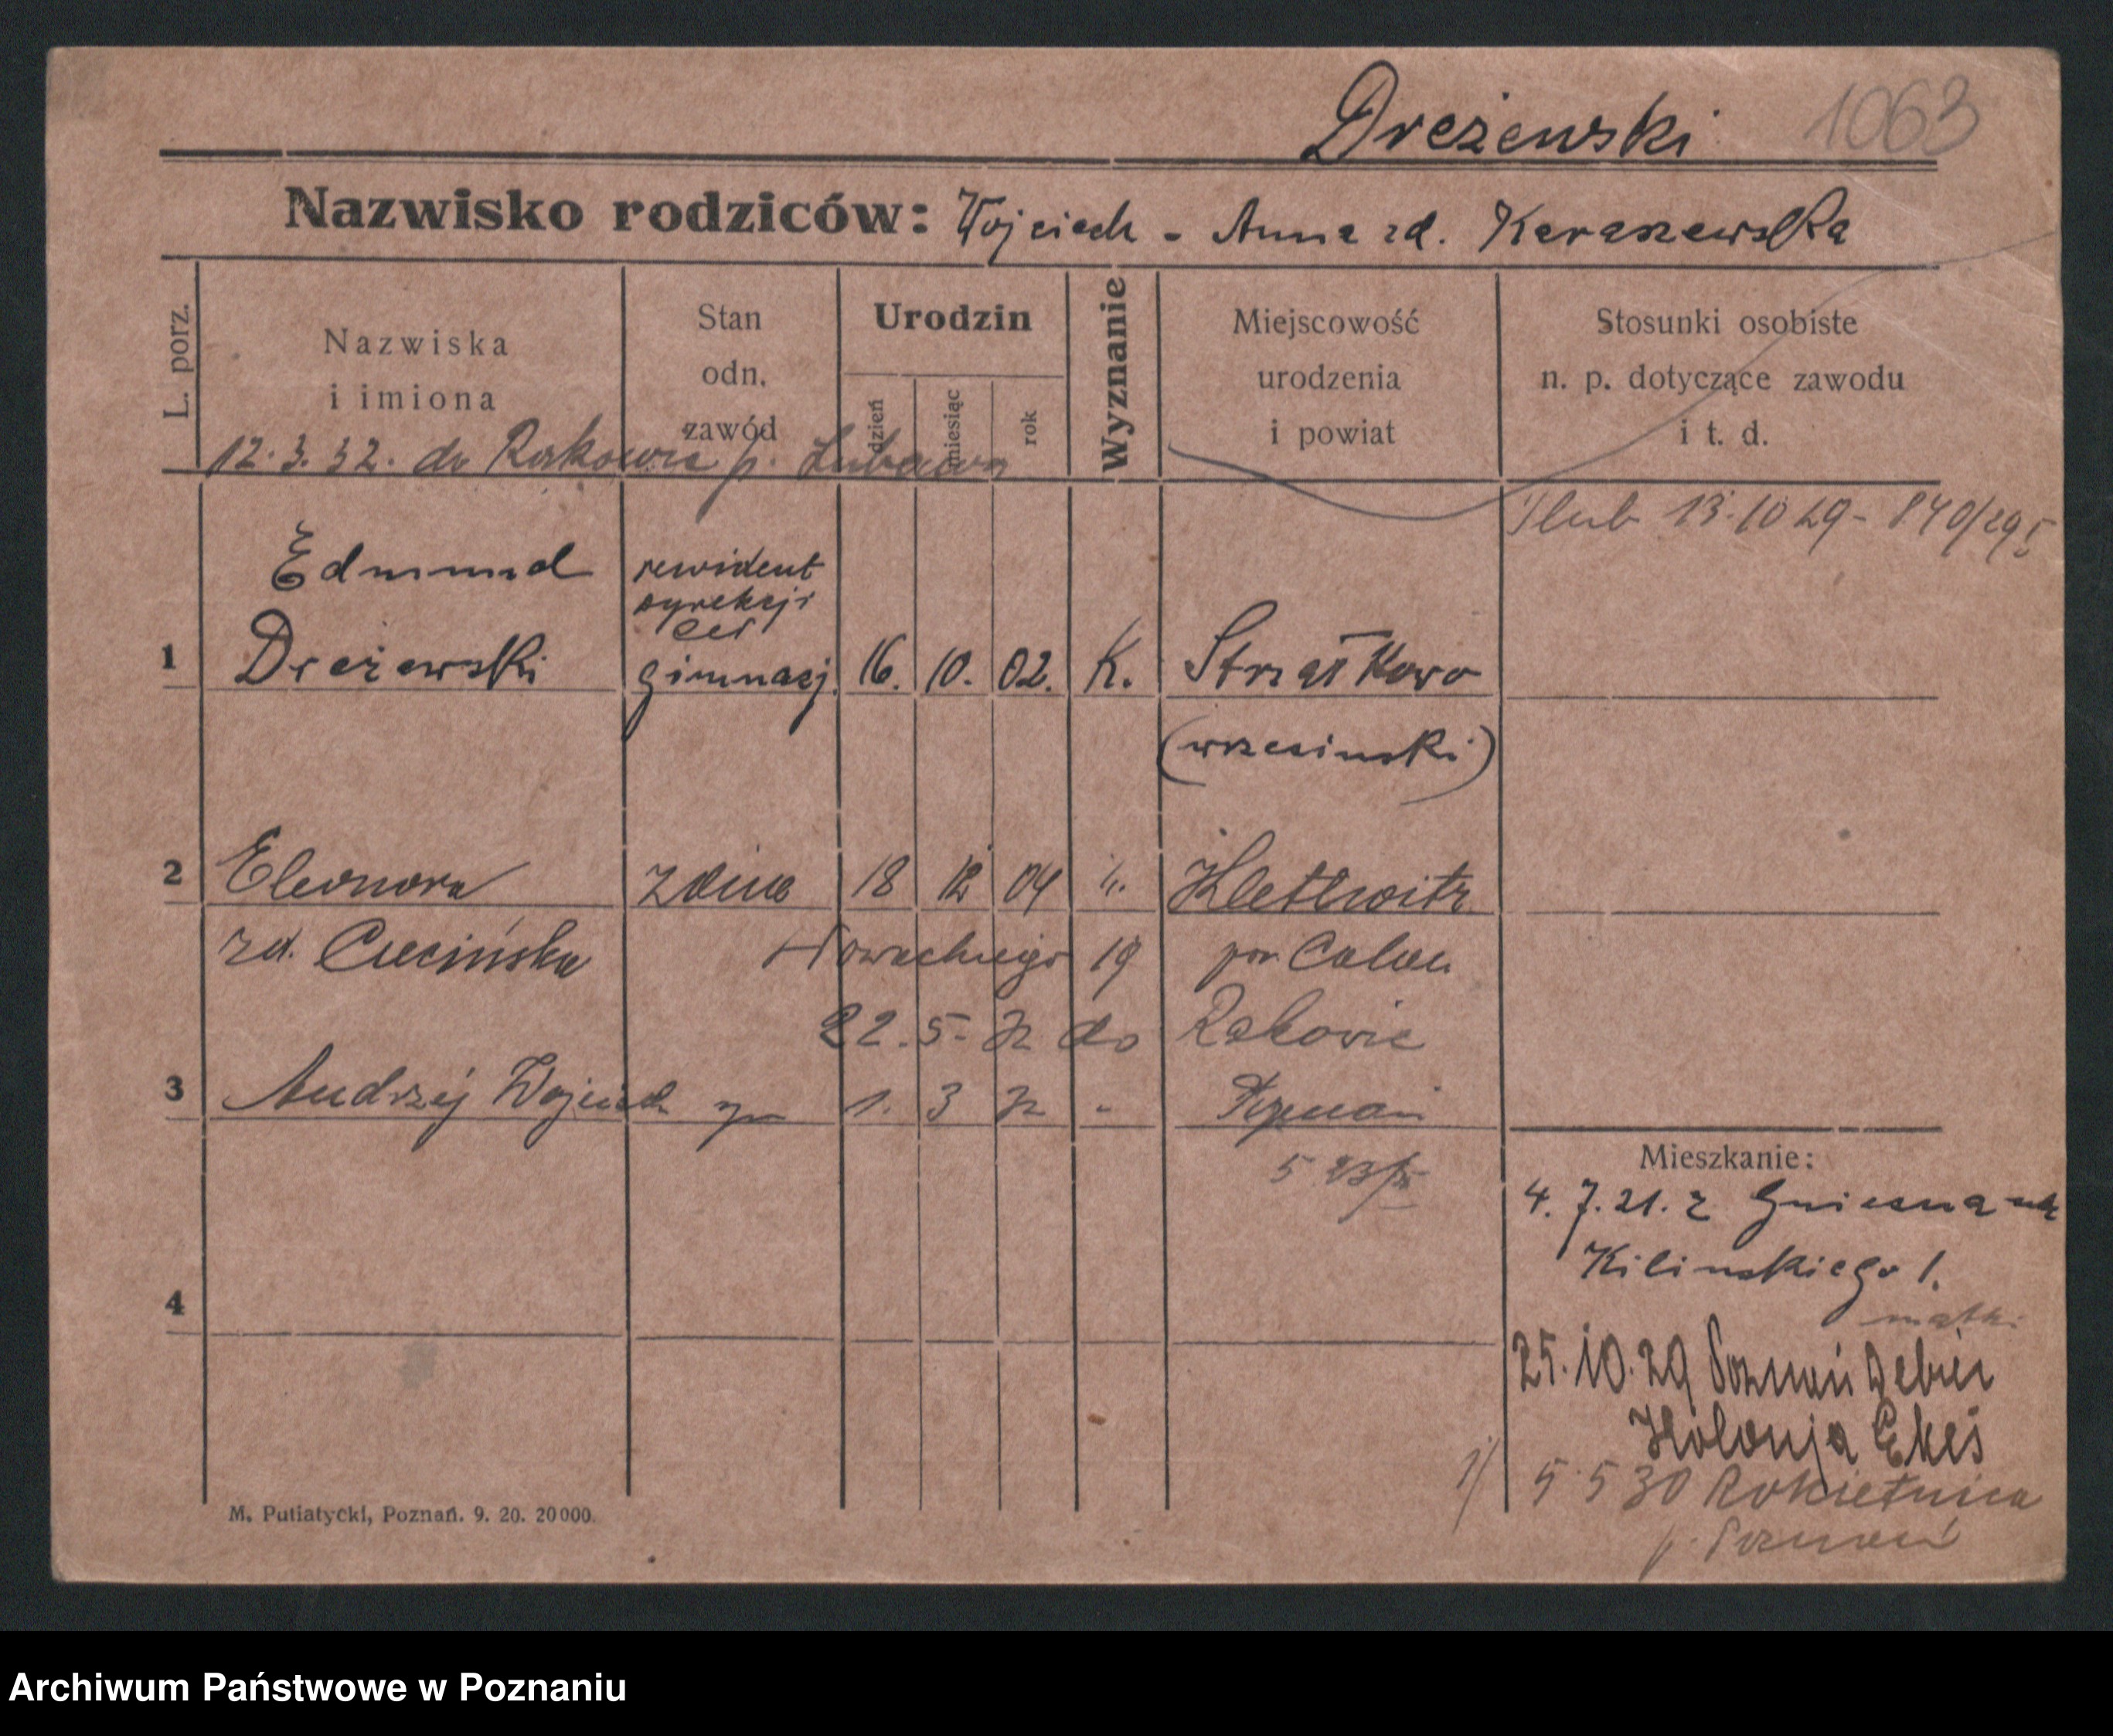 Dreżewski 1063
Nazwisko rodziców: Wojciech - Anna zd. Karaszewska
L. porz.
Nazwiska
i imiona
Stan
odn.
zawód
Urodzin
dzień
miesiąc
rok
Wyznanie
Miejscowość
urodzenia
i powiat
Stosunki osobiste
n. p. dotyczące zawodu
i t. d.
12.3.32. do Rakowic p. Lubawa
Ślub 13.10 29 - 840/29
1 Edmund
Dreżewski
rewident
dyrekcji
ceł
gimnazj.
16. 10. 02. K. Strzałkowo
(wrzesinski)
2 Eleonora żona 18 12 04 K. Klettwitz
zd. Ciecińska Nowackiego 19 pow Calau
22. 5. 32 do Rakowic
3 Andrzej Wojciech syn 1. 3 32 - Poznań
4
Mieszkanie:
4. 7. 21. z Gniezna
Kilinskiego 1.
matki
25. 10. 29 Poznań Dębiec
Kolonja
5 5 30 Rokietnica
p. Poznań
M. Putiatycki, Poznań. 9. 20. 20000.
Archiwum Państwowe w Poznaniu